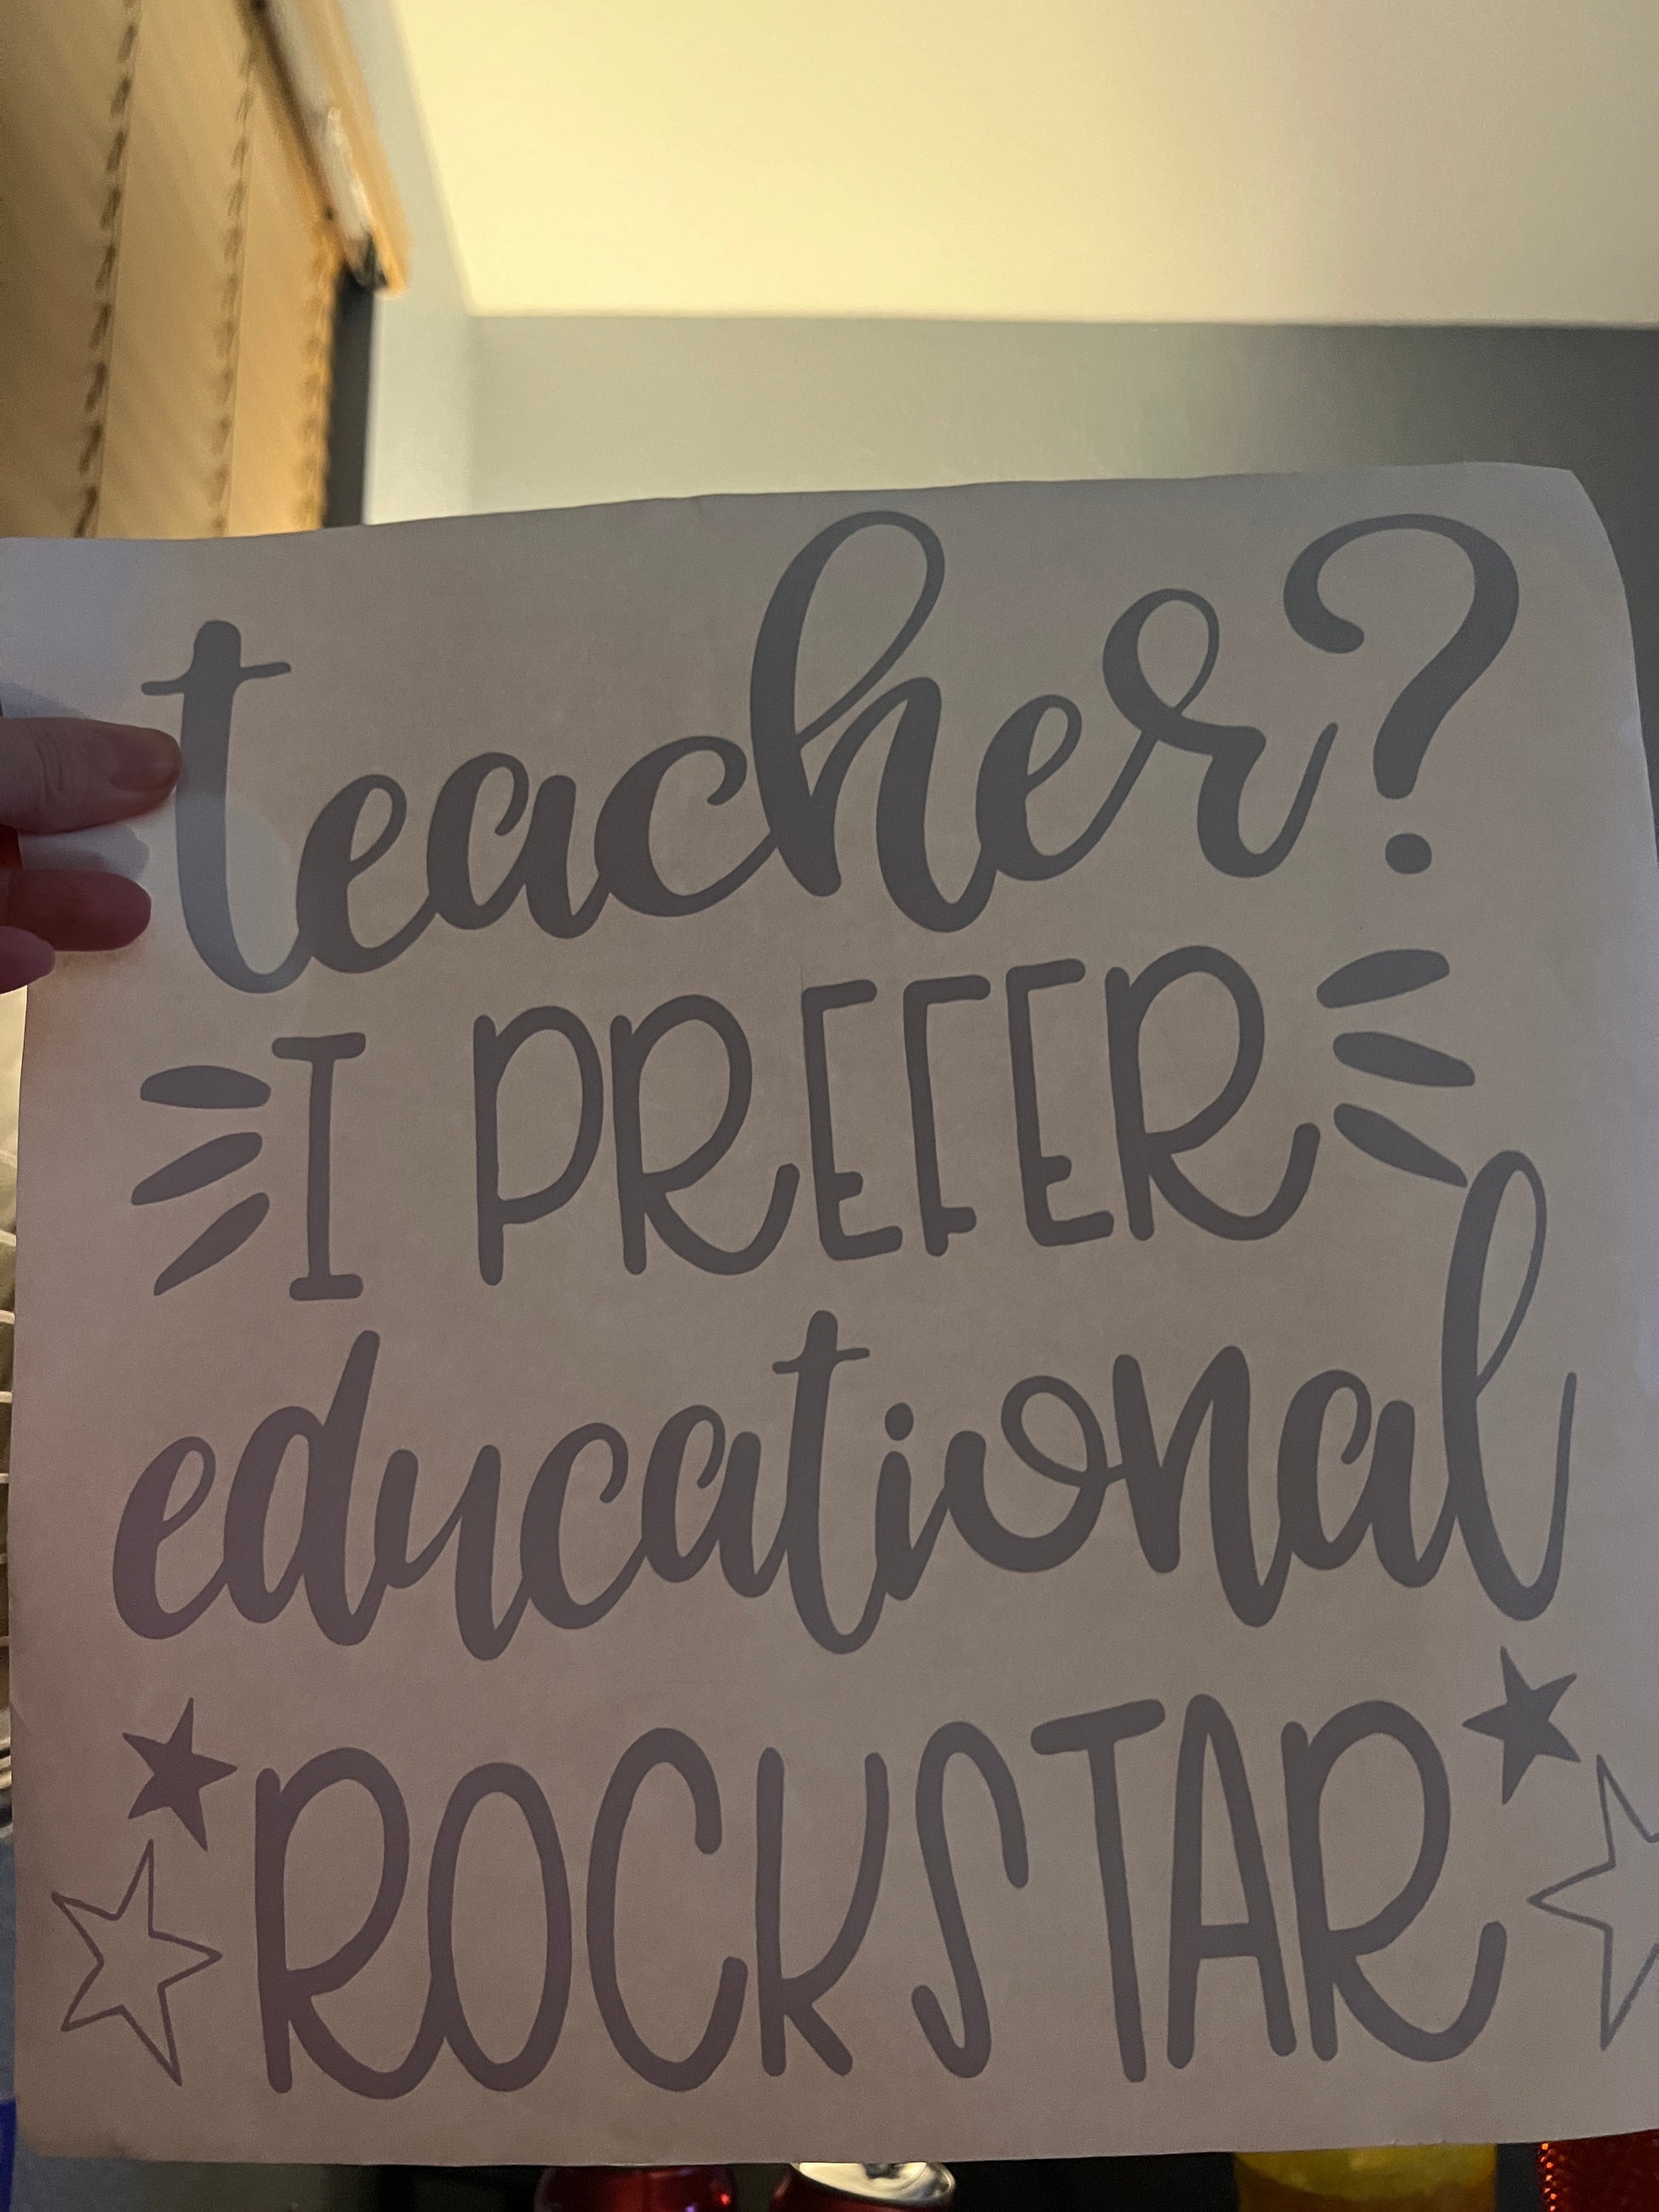 teacher?
I PREFER
educational
ROCKSTAR